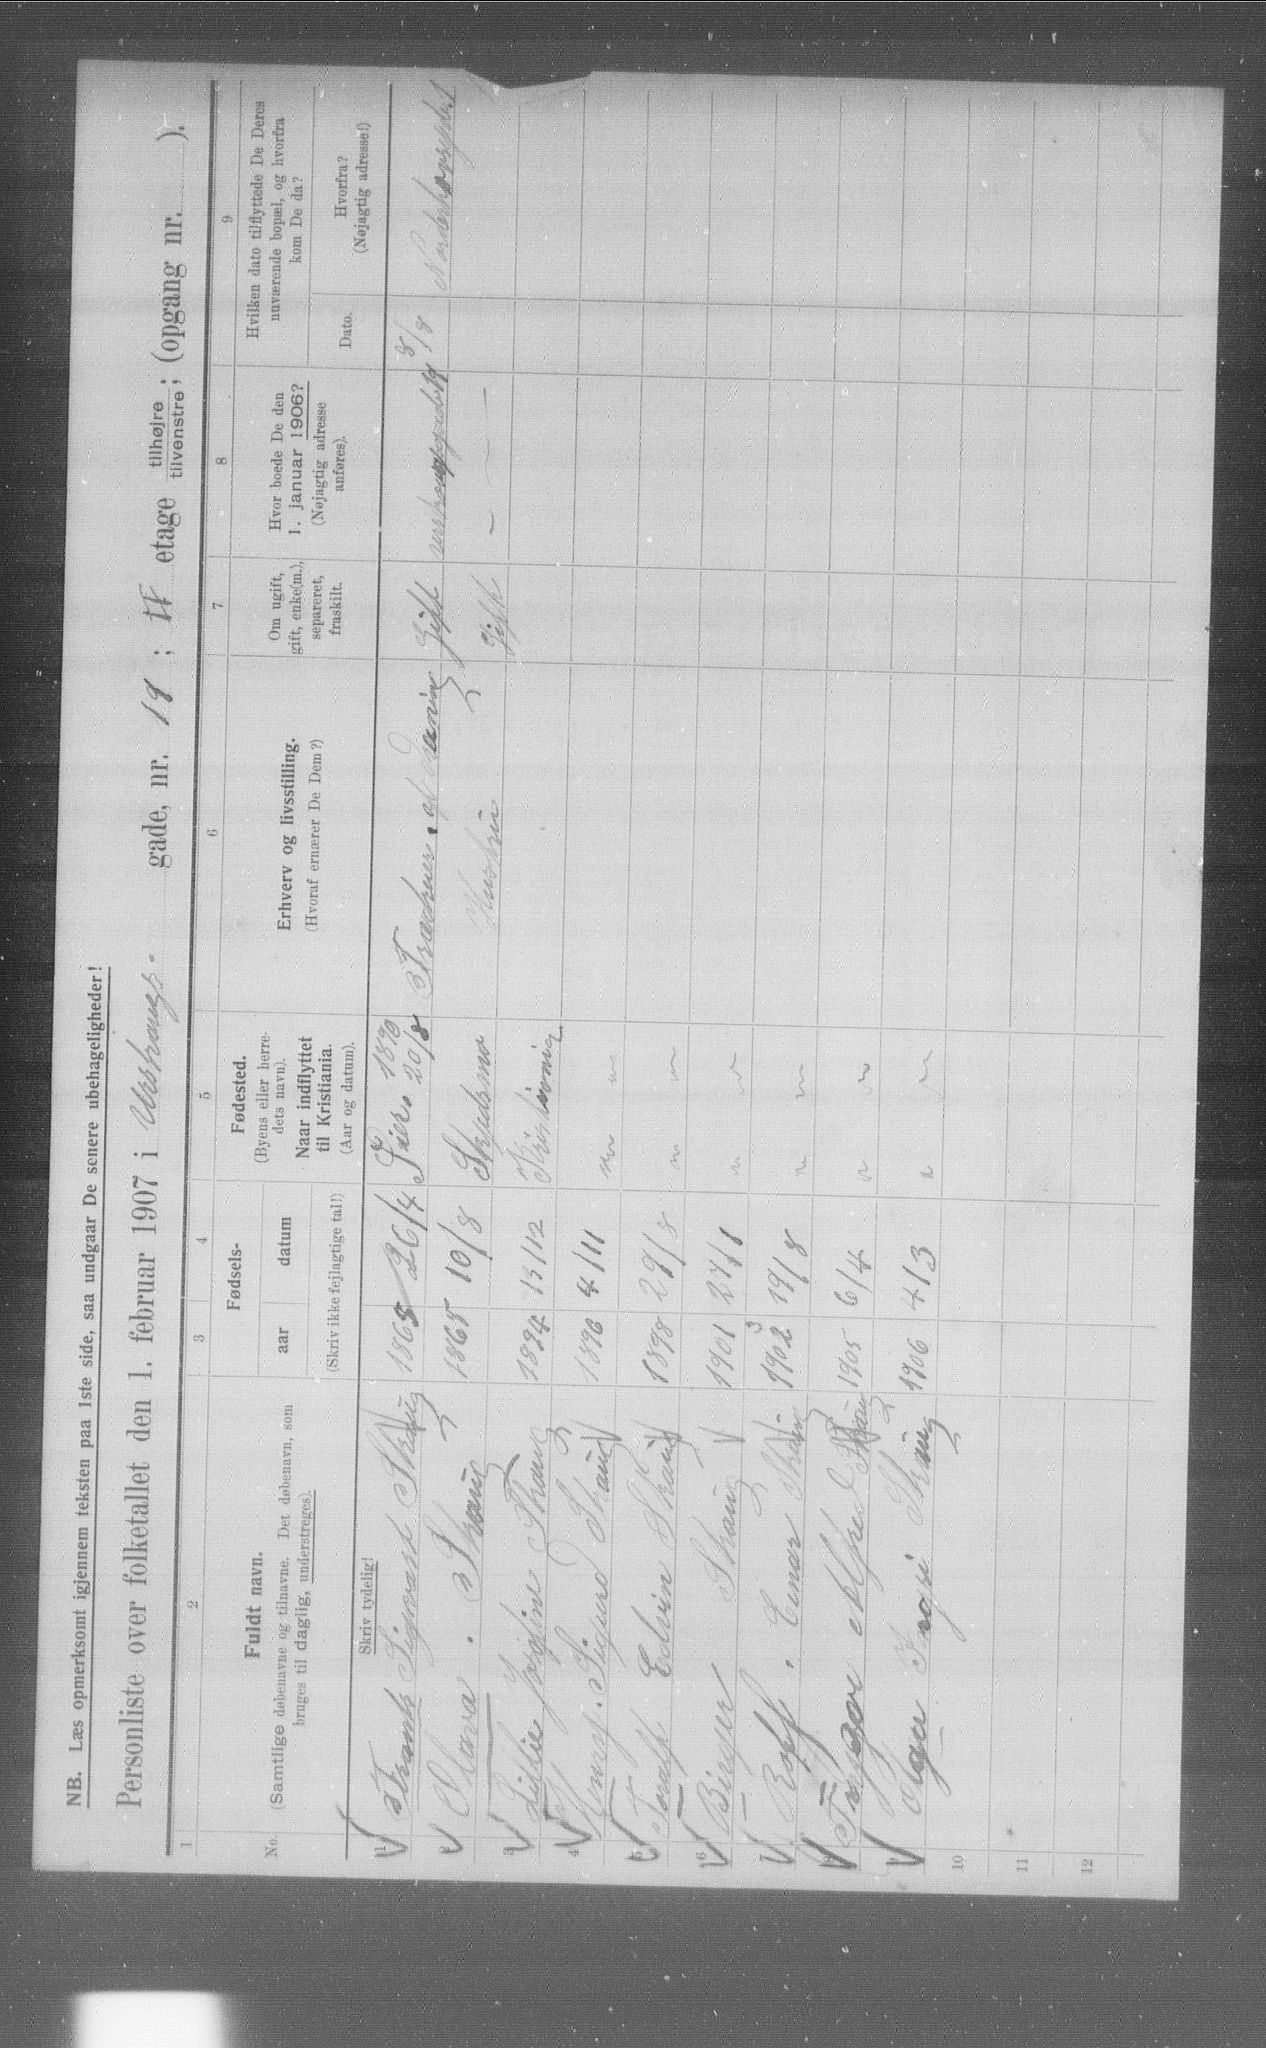 NB. Læs opmerksomt igjennem teksten paa 1ste side, saa undgaar De senere ubehageligheder!
Personliste over folketallet den 1. februar 1907 i gade, nr. 18 ; II etage tilhøjre / tilvenstre ; (opgang nr. ).
1 2 3 4 5 6 7 8 9
No.
Fuldt navn.
(Samtlige døbenavne og tilnavne. Det døbenavn, som
bruges til daglig, understreges).
Fødsels-
aar datum
(Skriv ikke fejlagtige tal!)
Fødested.
(Byens eller herre-
dets navn).
Naar indflyttet
til Kristiania.
(Aar og datum).
Erhverv og livsstilling.
(Hvoraf ernærer De Dem?)
Om ugift,
gift, enke(m.),
separeret,
fraskilt.
Hvor boede De den
1. januar 1906?
(Nøjagtig adresse
anføres).
Hvilken dato tilflyttede De Deres
nuværende bopæl, og hvorfra
kom De da?
Dato.
Hvorfra?
(Nøjagtig adresse!)
Skriv tydelig!
1 Frank Sigvart Skaug 26/4 Lier. 1890 20/8 Gift 8/8
2 Clara. Skaug 1865 10/8 Skedsmo Hustru Gift - - -
3 Lillie Josefine Skaug 1894 13/12 Kristiania
4 Henry. Sigurd Skaug 1896 4/11 " "
5 Toralf Edvin Skaug 1898 29/8 " "
6 Birger Skaug 1901 27/1 " "
7 Rolf. Einar Skaug 19/8 " "
8 Alfred Skaug 1905 6/4 " "
9 Skaug 1906 4/3 " "
10
11
12